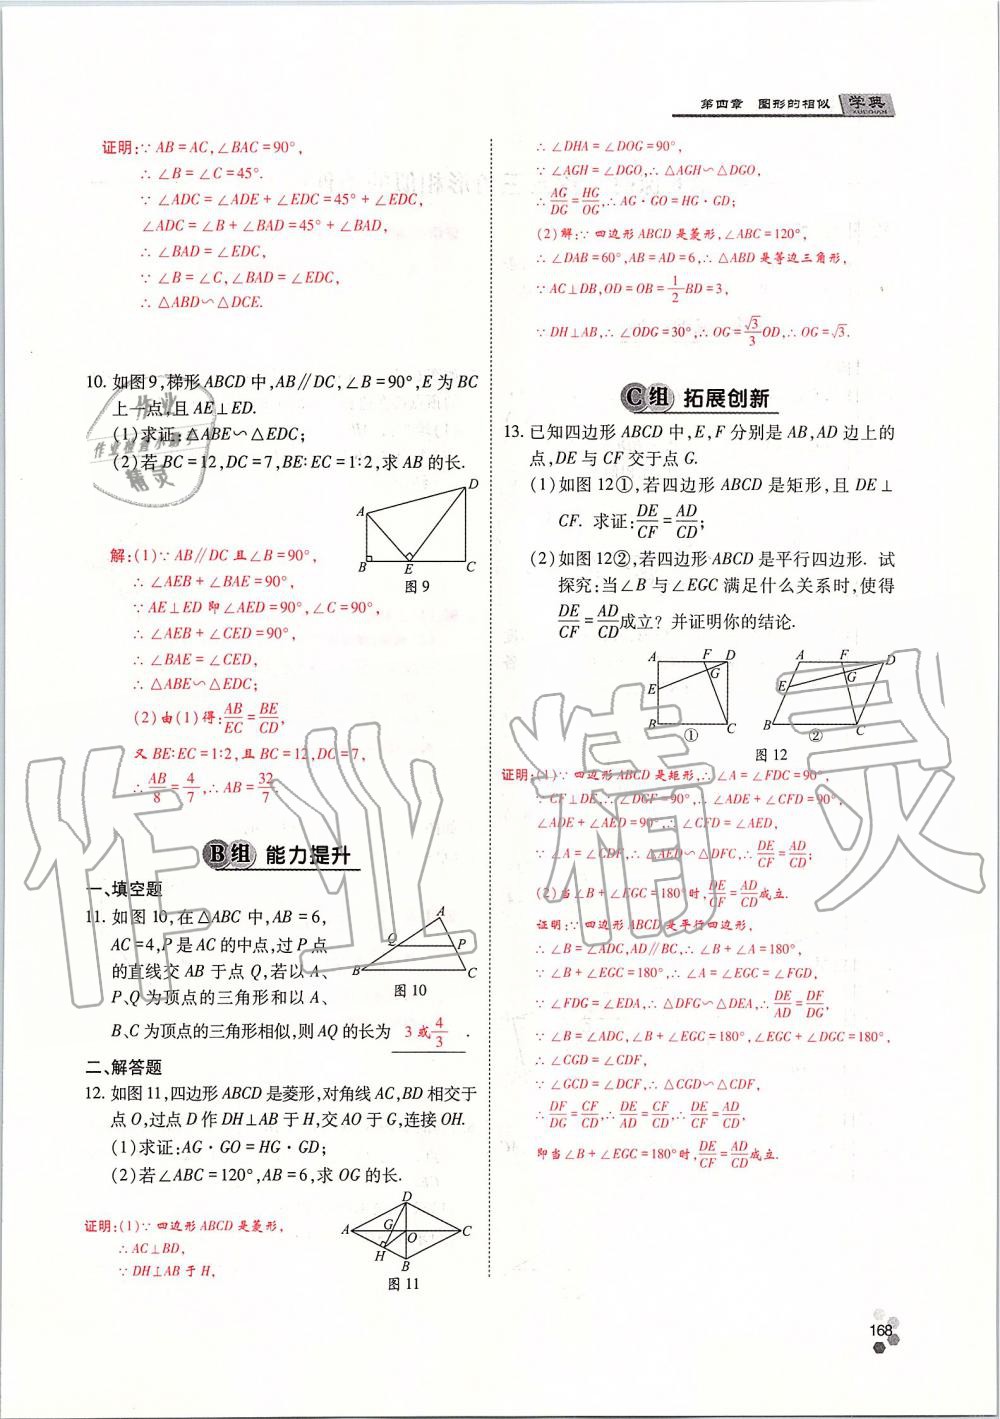 第四章 图形的相似 学典
XUEDIAN
证明:∵AB=AC,∠BAC=90°,
∴∠B=∠C=45°.
∵∠ADC=∠ADE+∠EDC=45°+∠EDC,
∠ADC=∠B+∠BAD=45°+∠BAD,
∴∠BAD=∠EDC,
∵∠B=∠C,∠BAD=∠EDC,
∴△ABD∽△DCE.
10. 如图9,梯形ABCD中,AB∥DC,∠B=90°,E为BC
上一点,且AE⊥ED.
(1)求证:△ABE∽△EDC;
(2)若BC=12,DC=7,BE∶EC=1∶2,求AB的长.
A D B E C
图9
解:(1)∵AB∥DC且∠B=90°,
∴∠AEB+∠BAE=90°,
∵AE⊥ED即∠AED=90°,∠C=90°,
∴∠AEB+∠CED=90°,
∴∠BAE=∠CED,
∴△ABE∽△EDC;
(2)由(1)得:AB/EC=BE/CD,
又BE∶EC=1∶2,且BC=12,DC=7,
∴AB/8=4/7,∴AB=32/7.
B组 能力提升
一、填空题
11. 如图10,在△ABC中,AB=6,
AC=4,P是AC的中点,过P点
的直线交AB于点Q,若以A、
P、Q为顶点的三角形和以A、
B、C为顶点的三角形相似,则AQ的长为 3或4/3 .
A Q P B C
图10
二、解答题
12. 如图11,四边形ABCD是菱形,对角线AC,BD相交于
点O,过点D作DH⊥AB于H,交AO于G,连接OH.
(1)求证:AG·GO=HG·GD;
(2)若∠ABC=120°,AB=6,求OG的长.
D A G O C H B
图11
证明:(1)∵四边形ABCD是菱形,
∴AC⊥BD,
∵DH⊥AB于H,
∴∠DHA=∠DOG=90°,
∵∠AGH=∠DGO,∴△AGH∽△DGO,
∴AG/DG=HG/OG,∴AG·GO=HG·GD;
(2)解:∵四边形ABCD是菱形,∠ABC=120°,
∴∠DAB=60°,AB=AD=6,∴△ABD是等边三角形,
∵AC⊥DB,OD=OB=1/2BD=3,
∵DH⊥AB,∴∠ODG=30°,∴OG=√3/3OD,∴OG=√3.
C组 拓展创新
13. 已知四边形ABCD中,E,F分别是AB,AD边上的
点,DE与CF交于点G.
(1)如图12①,若四边形ABCD是矩形,且DE⊥
CF. 求证:DE/CF=AD/CD;
(2)如图12②,若四边形ABCD是平行四边形. 试
探究:当∠B与∠EGC满足什么关系时,使得
DE/CF=AD/CD成立?并证明你的结论.
A F D G E B C ①
A F D G E B C ②
图12
证明:(1)∵四边形ABCD是矩形,∴∠A=∠FDC=90°,
∵CF⊥DE,∴∠DGF=90°,∴∠ADE+∠CFD=90°,
∠ADE+∠AED=90°,∴∠CFD=∠AED,
∵∠A=∠CDF,∴△AED∽△DFC,∴DE/CF=AD/CD;
(2)当∠B+∠EGC=180°时,DE/CF=AD/CD成立.
证明:∵四边形ABCD是平行四边形,
∴∠B=∠ADC,AD∥BC,∴∠B+∠A=180°,
∵∠B+∠EGC=180°,∴∠A=∠EGC=∠FGD,
∵∠FDG=∠EDA,∴△DFG∽△DEA,∴DE/AD=DF/DG,
∵∠B=∠ADC,∠B+∠EGC=180°,∠EGC+∠DGC=180°,
∴∠CGD=∠CDF,
∵∠GCD=∠DCF,∴△CGD∽△CDF,
∴DF/DG=CF/CD,∴DE/AD=CF/CD,∴DE/CF=AD/CD,
即当∠B+∠EGC=180°时,DE/CF=AD/CD成立.
168
作业精灵